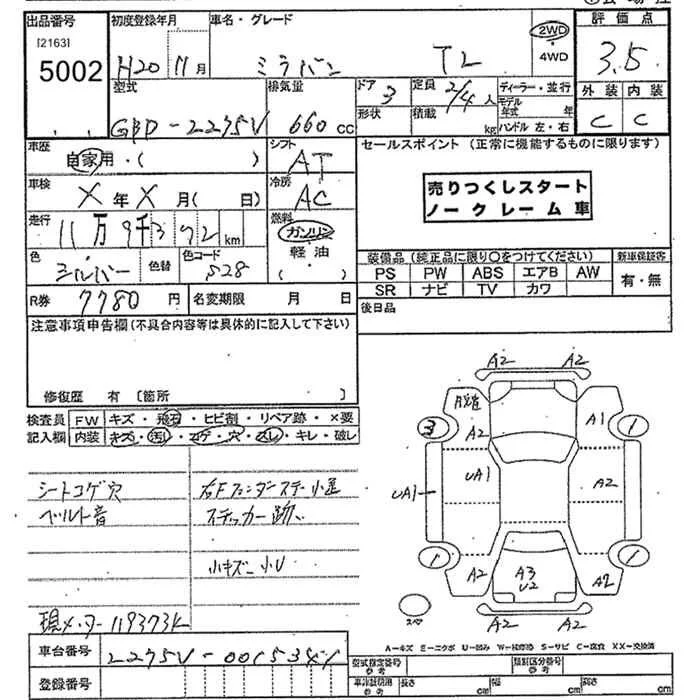 出品番号 [2163] 5002
初度登録年月 H20 11月
車名・グレード ミラバン TL
2WD・4WD
評価点 3.5
外装 内装
C C
型式 GBD-L275V
排気量 660 cc
ドア 3
形状
定員 2/4人
積載 kg
ディーラー・並行
モデル年式 年
ハンドル 左・右
車歴 自家用・( )
シフト AT
車検 X年X月( 日)
冷房 AC
走行 11万9千372km
燃料 ガソリン 軽油 ( )
色 シルバー 色替
色コード S28
R券 7780円
名変期限 月 日
セールスポイント (正常に機能するものに限ります)
売りつくしスタート
ノークレーム車
装備品 (純正品に限り○をつけてください)
新車保証書
PS PW ABS エアB AW
SR ナビ TV カワ
有・無
後日品
注意事項申告欄(不具合内容等は具体的に記入して下さい)
修復歴 有 [箇所 ]
検査員記入欄
FW キズ・飛石・ヒビ割・リペア跡・×要
内装 キズ・汚レ・コゲ・穴・スレ・キレ・破レ
シートコゲ穴
ベルト音
右Fフェンダーステー小歪
ステッカー跡
小キズ 小U
現メーター119373K
車台番号 L275V-0015341
登録番号
A2 A2
脱着
3
A2
A1
1
UA1
UA1
A2
1
A2
A3
U2
A2
1
スペア
A2 A2
A-キズ E-エクボ U-凹み W-補修跡 S-サビ C-腐食 XX-交換済
型式指定番号 参考
類別区分番号 参考
長さ cm
幅 cm
高さ cm